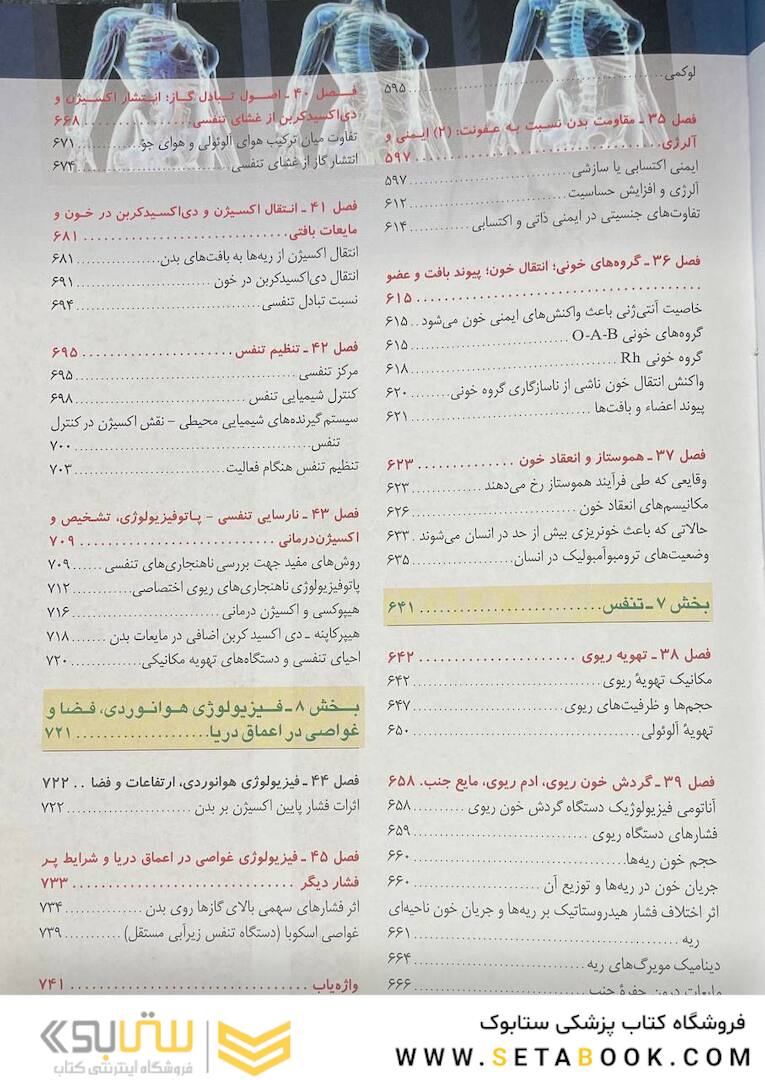 لوکمی ........ ۵۹۵
فصل ۳۵ ـ مقاومت بدن نسبت به عفونت: (۲) ایمنی و
آلرژی ........ ۵۹۷
ایمنی اکتسابی یا سازشی ........ ۵۹۷
آلرژی و افزایش حساسیت ........ ۶۱۲
تفاوت‌های جنسیتی در ایمنی ذاتی و اکتسابی ........ ۶۱۴
فصل ۳۶ ـ گروه‌های خونی؛ انتقال خون؛ پیوند بافت و عضو
........ ۶۱۵
خاصیت آنتی‌ژنی باعث واکنش‌های ایمنی خون می‌شود .. ۶۱۵
گروه‌های خونی O-A-B ........ ۶۱۵
گروه خونی Rh ........ ۶۱۸
واکنش انتقال خون ناشی از ناسازگاری گروه خونی ........ ۶۲۰
پیوند اعضاء و بافت‌ها ........ ۶۲۱
فصل ۳۷ ـ هموستاز و انعقاد خون ........ ۶۲۳
وقایعی که طی فرآیند هموستاز رخ می‌دهند ........ ۶۲۳
مکانیسم‌های انعقاد خون ........ ۶۲۶
حالاتی که باعث خونریزی بیش از حد در انسان می‌شوند . ۶۳۳
وضعیت‌های ترومبوآمبولیک در انسان ........ ۶۳۵
بخش ۷ ـ تنفس ........ ۶۴۱
فصل ۳۸ ـ تهویه ریوی ........ ۶۴۲
مکانیک تهویهٔ ریوی ........ ۶۴۲
حجم‌ها و ظرفیت‌های ریوی ........ ۶۴۷
تهویهٔ آلوئولی ........ ۶۵۰
فصل ۳۹ ـ گردش خون ریوی، ادم ریوی، مایع جنب. ۶۵۸
آناتومی فیزیولوژیک دستگاه گردش خون ریوی ........ ۶۵۸
فشارهای دستگاه ریوی ........ ۶۵۹
حجم خون ریه‌ها ........ ۶۶۰
جریان خون در ریه‌ها و توزیع آن ........ ۶۶۰
اثر اختلاف فشار هیدروستاتیک بر ریه‌ها و جریان خون ناحیه‌ای
ریه ........ ۶۶۱
دینامیک مویرگ‌های ریه ........ ۶۶۴
مایعات درون حفرهٔ جنب ........ ۶۶۶
فصل ۴۰ ـ اصول تبادل گاز: انتشار اکسیژن و
دی‌اکسیدکربن از غشای تنفسی ........ ۶۶۸
تفاوت میان ترکیب هوای آلوئولی و هوای جوّ ........ ۶۷۱
انتشار گاز از غشای تنفسی ........ ۶۷۴
فصل ۴۱ ـ انتقال اکسیژن و دی‌اکسیدکربن در خون و
مایعات بافتی ........ ۶۸۱
انتقال اکسیژن از ریه‌ها به بافت‌های بدن ........ ۶۸۱
انتقال دی‌اکسیدکربن در خون ........ ۶۹۱
نسبت تبادل تنفسی ........ ۶۹۴
فصل ۴۲ ـ تنظیم تنفس ........ ۶۹۵
مرکز تنفسی ........ ۶۹۵
کنترل شیمیایی تنفس ........ ۶۹۸
سیستم گیرنده‌های شیمیایی محیطی – نقش اکسیژن در کنترل
تنفس ........ ۷۰۰
تنظیم تنفس هنگام فعالیت ........ ۷۰۳
فصل ۴۳ ـ نارسایی تنفسی – پاتوفیزیولوژی، تشخیص و
اکسیژن‌درمانی ........ ۷۰۹
روش‌های مفید جهت بررسی ناهنجاری‌های تنفسی ........ ۷۰۹
پاتوفیزیولوژی ناهنجاری‌های ریوی اختصاصی ........ ۷۱۲
هیپوکسی و اکسیژن درمانی ........ ۷۱۶
هیپرکاپنه ـ دی اکسید کربن اضافی در مایعات بدن ........ ۷۱۸
احیای تنفسی و دستگاه‌های تهویه مکانیکی ........ ۷۲۰
بخش ۸ ـ فیزیولوژی هوانوردی، فضا و
غواصی در اعماق دریا ........ ۷۲۱
فصل ۴۴ ـ فیزیولوژی هوانوردی، ارتفاعات و فضا .. ۷۲۲
اثرات فشار پایین اکسیژن بر بدن ........ ۷۲۲
فصل ۴۵ ـ فیزیولوژی غواصی در اعماق دریا و شرایط پر
فشار دیگر ........ ۷۳۳
اثر فشارهای سهمی بالای گازها روی بدن ........ ۷۳۴
غواصی اسکوبا (دستگاه تنفس زیرآبی مستقل) ........ ۷۳۹
واژه‌یاب ........ ۷۴۱
فروشگاه کتاب پزشکی ستابوک
WWW.SETABOOK.COM
ستابوک
فروشگاه اینترنتی کتاب